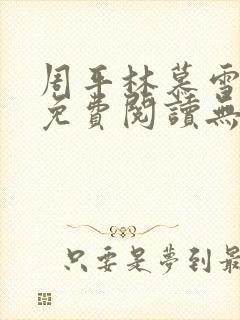 周平林慕雪
免費閱讀無
只要是夢到最